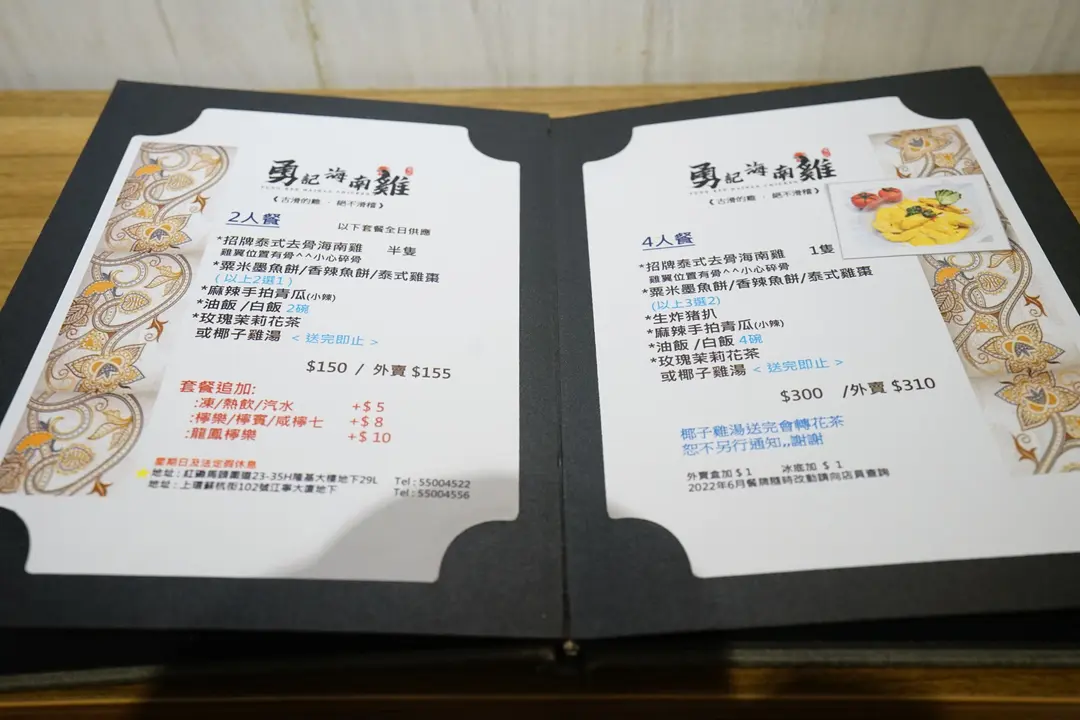 勇記海南雞
YUNG KEE HAINAN CHICKEN
《古滑的雞 · 絕不滑檯》
2人餐
以下套餐全日供應
*招牌泰式去骨海南雞 半隻
雞翼位置有骨^^小心碎骨
*粟米墨魚餅/香辣魚餅/泰式雞棗
(以上2選1)
*麻辣手拍青瓜(小辣)
*油飯/白飯 2碗
*玫瑰茉莉花茶
或椰子雞湯 < 送完即止 >
$150 / 外賣 $155
套餐追加:
:凍/熱飲/汽水 +$ 5
:檸樂/檸賓/咸檸七 +$ 8
:龍鳳檸樂 +$ 10
星期日及法定假休息
地址 : 紅磡馬頭圍道23-35H隆基大樓地下29L Tel : 55004522
地址 : 上環蘇杭街102號江寧大廈地下 Tel : 55004556
勇記海南雞
YUNG KEE HAINAN CHICKEN
《古滑的雞 · 絕不滑檯》
4人餐
*招牌泰式去骨海南雞 1隻
雞翼位置有骨^^小心碎骨
*粟米墨魚餅/香辣魚餅/泰式雞棗
(以上3選2)
*生炸豬扒
*麻辣手拍青瓜(小辣)
*油飯/白飯 4碗
*玫瑰茉莉花茶
或椰子雞湯 < 送完即止 >
$300 /外賣 $310
椰子雞湯送完會轉花茶
恕不另行通知,,謝謝
外賣盒加 $ 1 冰底加 $ 1
2022年6月餐牌隨時改動請向店員查詢